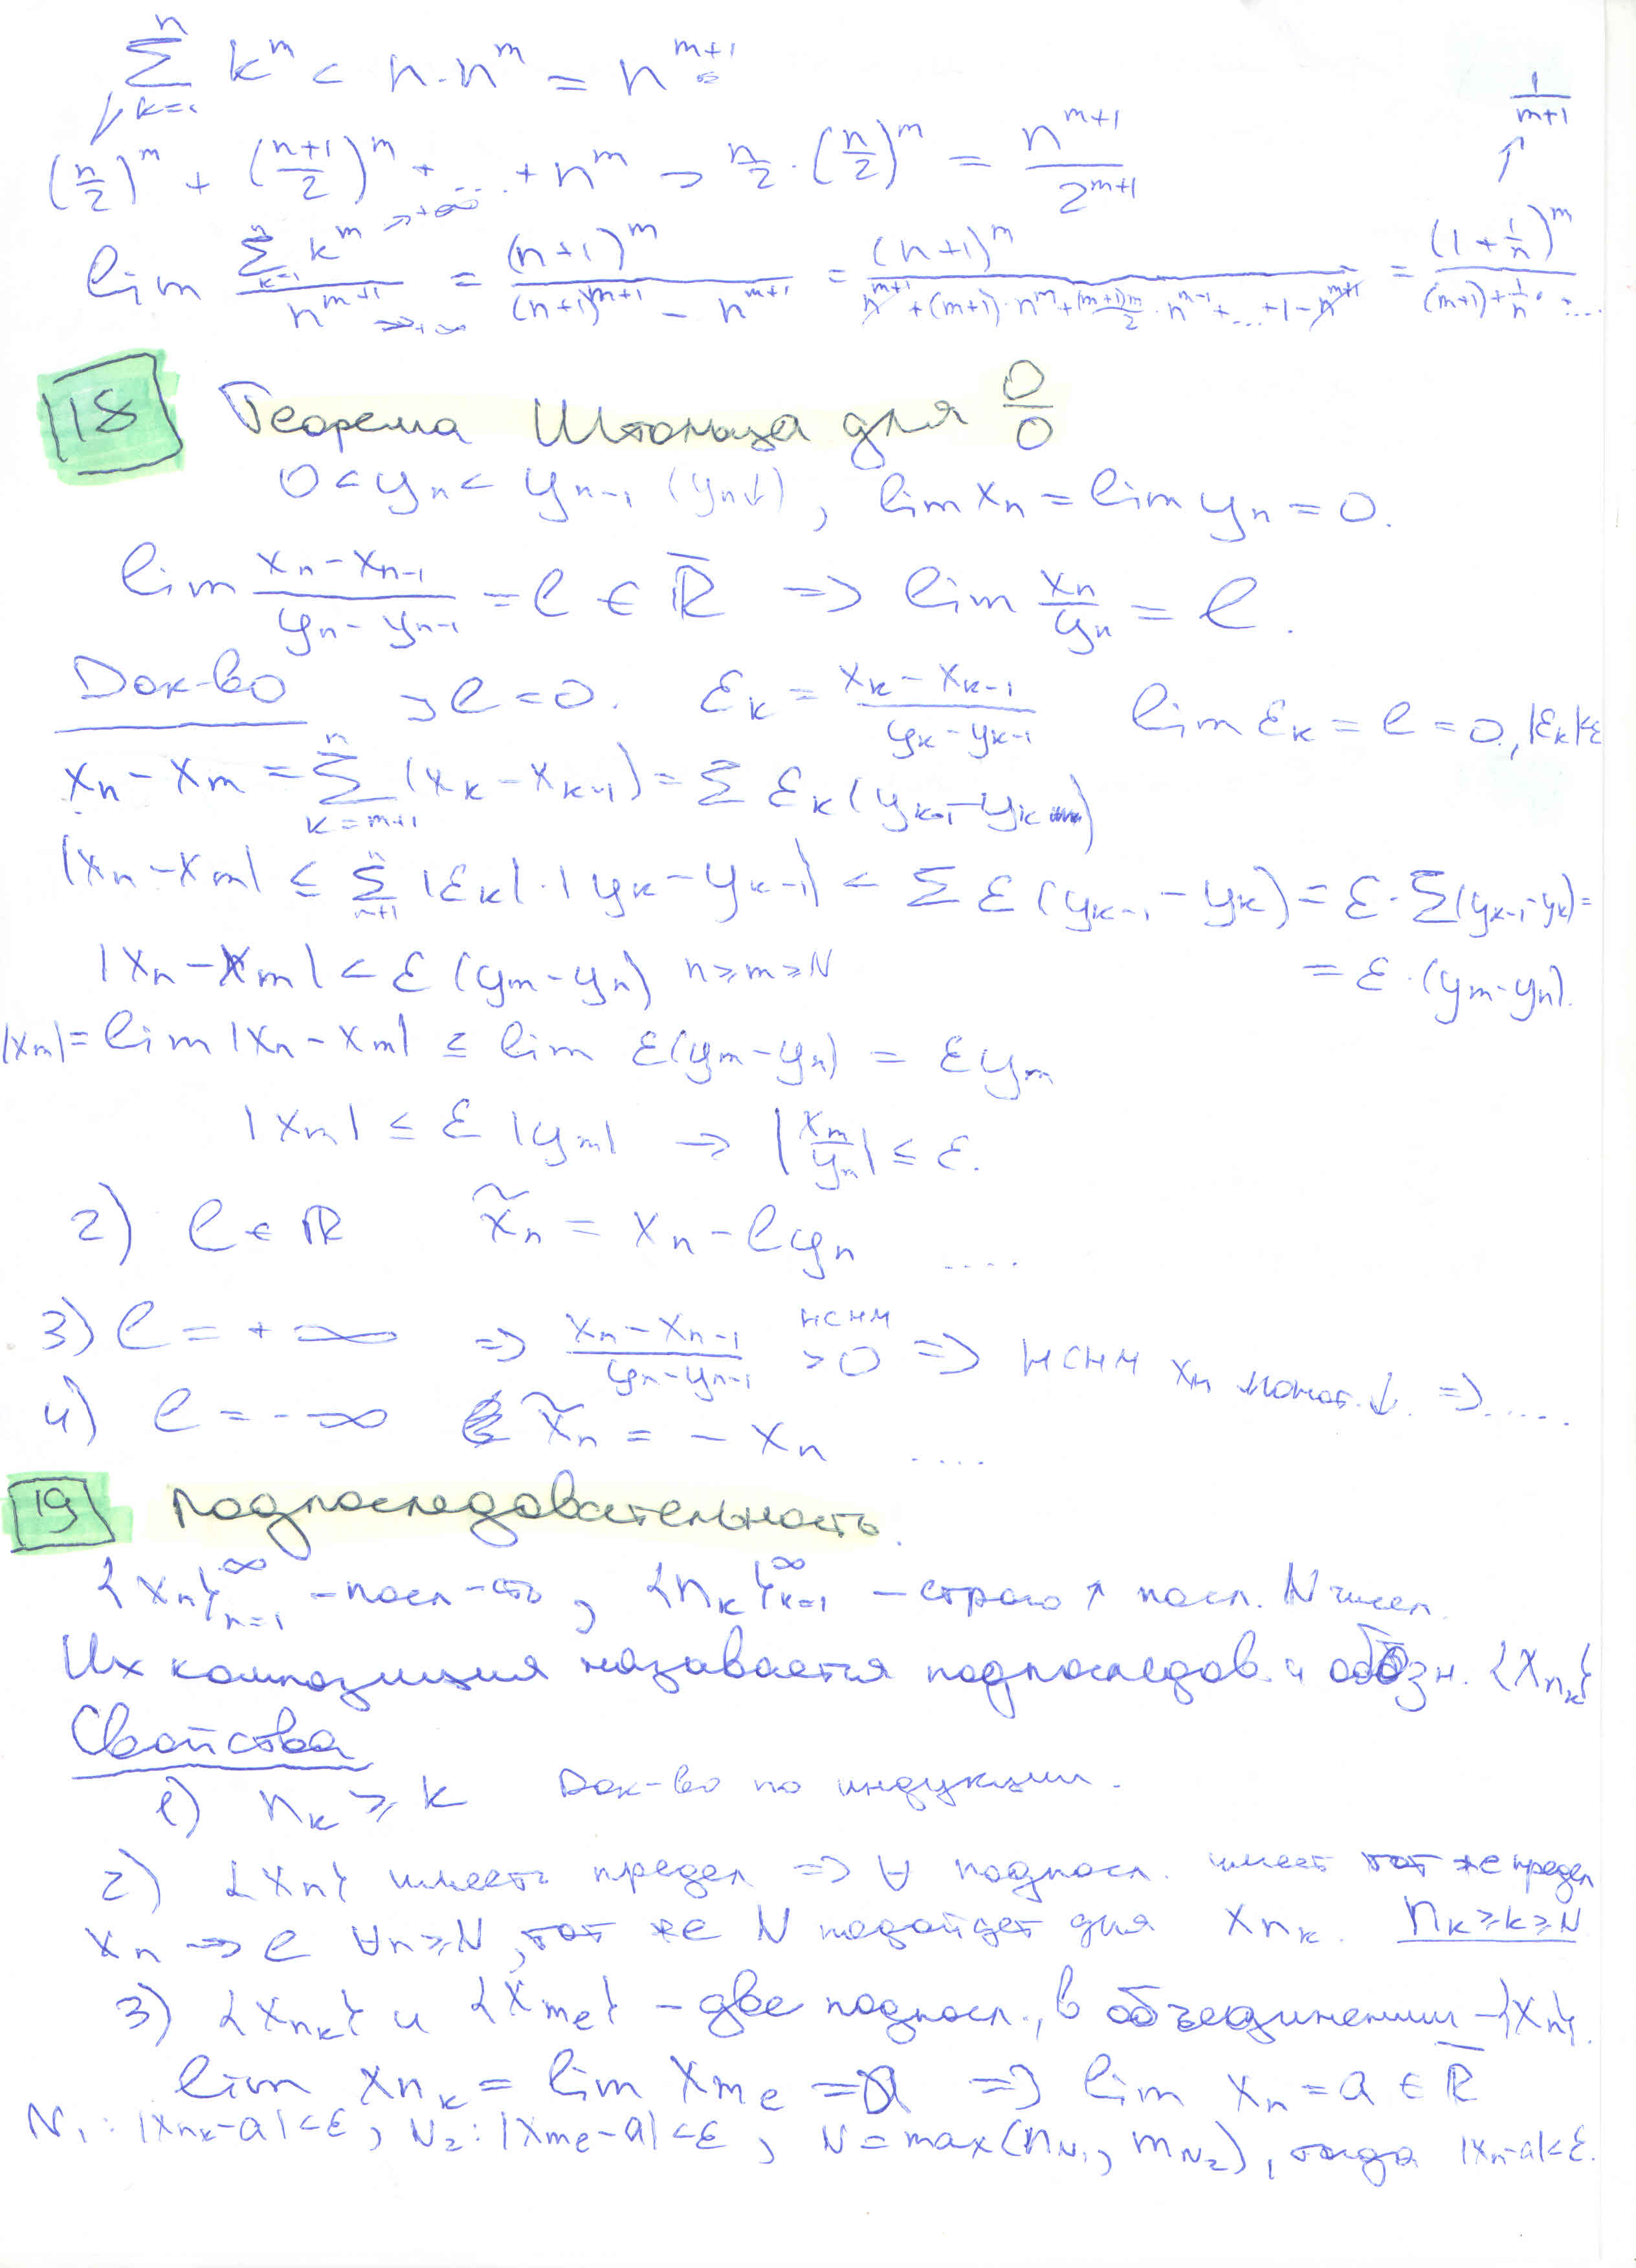 ∑_{k=1}^{n} k^m < n·n^m = n^{m+1}
(n/2)^m + ((n+1)/2)^m + ... + n^m > n/2 · (n/2)^m = n^{m+1}/2^{m+1}
1/(m+1) ↑
lim (∑_{k=1}^{n} k^m →+∞)/(n^{m+1} →+∞) = (n+1)^m/((n+1)^{m+1} − n^{m+1}) = (n+1)^m/(n^{m+1} + (m+1)·n^m + (m+1)m/2 · n^{m-1} + ... + 1 − n^{m+1}) = (1+1/n)^m/((m+1)+1/n· + ....
18 Теорема Штольца для 0/0
0 < y_n < y_{n-1} (y_n↓), lim x_n = lim y_n = 0.
lim (x_n − x_{n-1})/(y_n − y_{n-1}) = l ∈ R̄ => lim x_n/y_n = l.
Док-во l = 0. ε_k = (x_k − x_{k-1})/(y_k − y_{k-1}) lim ε_k = l = 0, |ε_k|<ε
x_n − x_m = ∑_{k=m+1}^{n} (x_k − x_{k-1}) = ∑ ε_k (y_{k-1} − y_k)
|x_n − x_m| ≤ ∑_{m+1}^{n} |ε_k|·|y_k − y_{k-1}| < ∑ ε (y_{k-1} − y_k) = ε·∑(y_{k-1} − y_k) =
|x_n − x_m| < ε (y_m − y_n) n≥m≥N = ε·(y_m − y_n).
|x_m| = lim |x_n − x_m| ≤ lim ε(y_m − y_n) = εy_m
|x_m| ≤ ε |y_m| → |x_m/y_m| ≤ ε.
2) l ∈ R x̃_n = x_n − ly_n ....
3) l = +∞ => (x_n − x_{n-1})/(y_n − y_{n-1}) НСНМ > 0 => НСНМ x_n монот.↓. =>.....
4) l = −∞ x̃_n = − x_n ....
19 Подпоследовательность.
{x_n}_{n=1}^∞ – посл-сть, {n_k}_{k=1}^∞ – строго ↑ посл. N чисел.
Их композиция называется подпоследов. и обозн. {x_{n_k}}
Свойства
1) n_k ≥ k Док-во по индукции.
2) {x_n} имеет предел => ∀ подпосл. имеет тот же предел
x_n → l ∀n≥N, тот же N подойдет для x_{n_k}. n_k≥k≥N
3) {x_{n_k}} и {x_{m_l}} – две подпосл., в объединении – {x_n}.
lim x_{n_k} = lim x_{m_l} = a => lim x_n = a ∈ R̄
N_1: |x_{n_k}−a|<ε, N_2: |x_{m_l}−a|<ε, N = max(n_{N_1}, m_{N_2}), тогда |x_n−a|<ε.